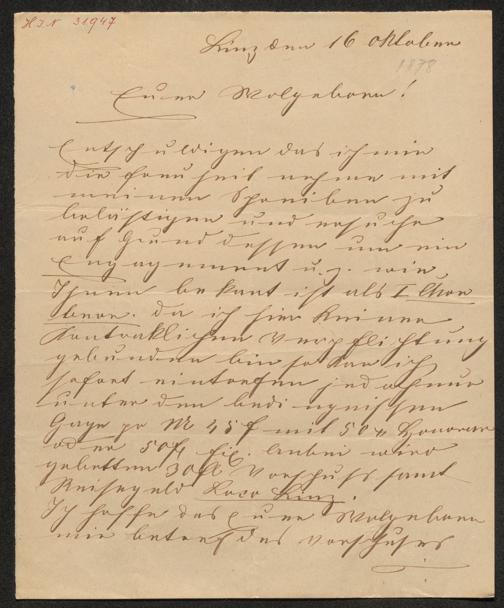 HJN 31947
Linz den 16 Oktober
1878
Euer Wolgeborn!
Entschuldigen das ich mir
die freuheit nehme mit
meinen Schreiben zu
belästigen und ersuche
auf Grund dessen um ein
Engagement u. z. wie
Ihnen bekant ist als I Chor
da ich hier keinen
Kontraktlichen Verpflichtung
gebunden bin so kan ich
sofort eintreffen jedoch nur
unter den bedingnissen
Gage pr M 45 f mit 50 x Honorar
oder 50 f fix. Anbei wird
gebetten 30 fl Vorschuss samt
Reisegeld Loco Linz.
Ich hoffe das Euer Wolgeborn
mir betref des Vorschuses